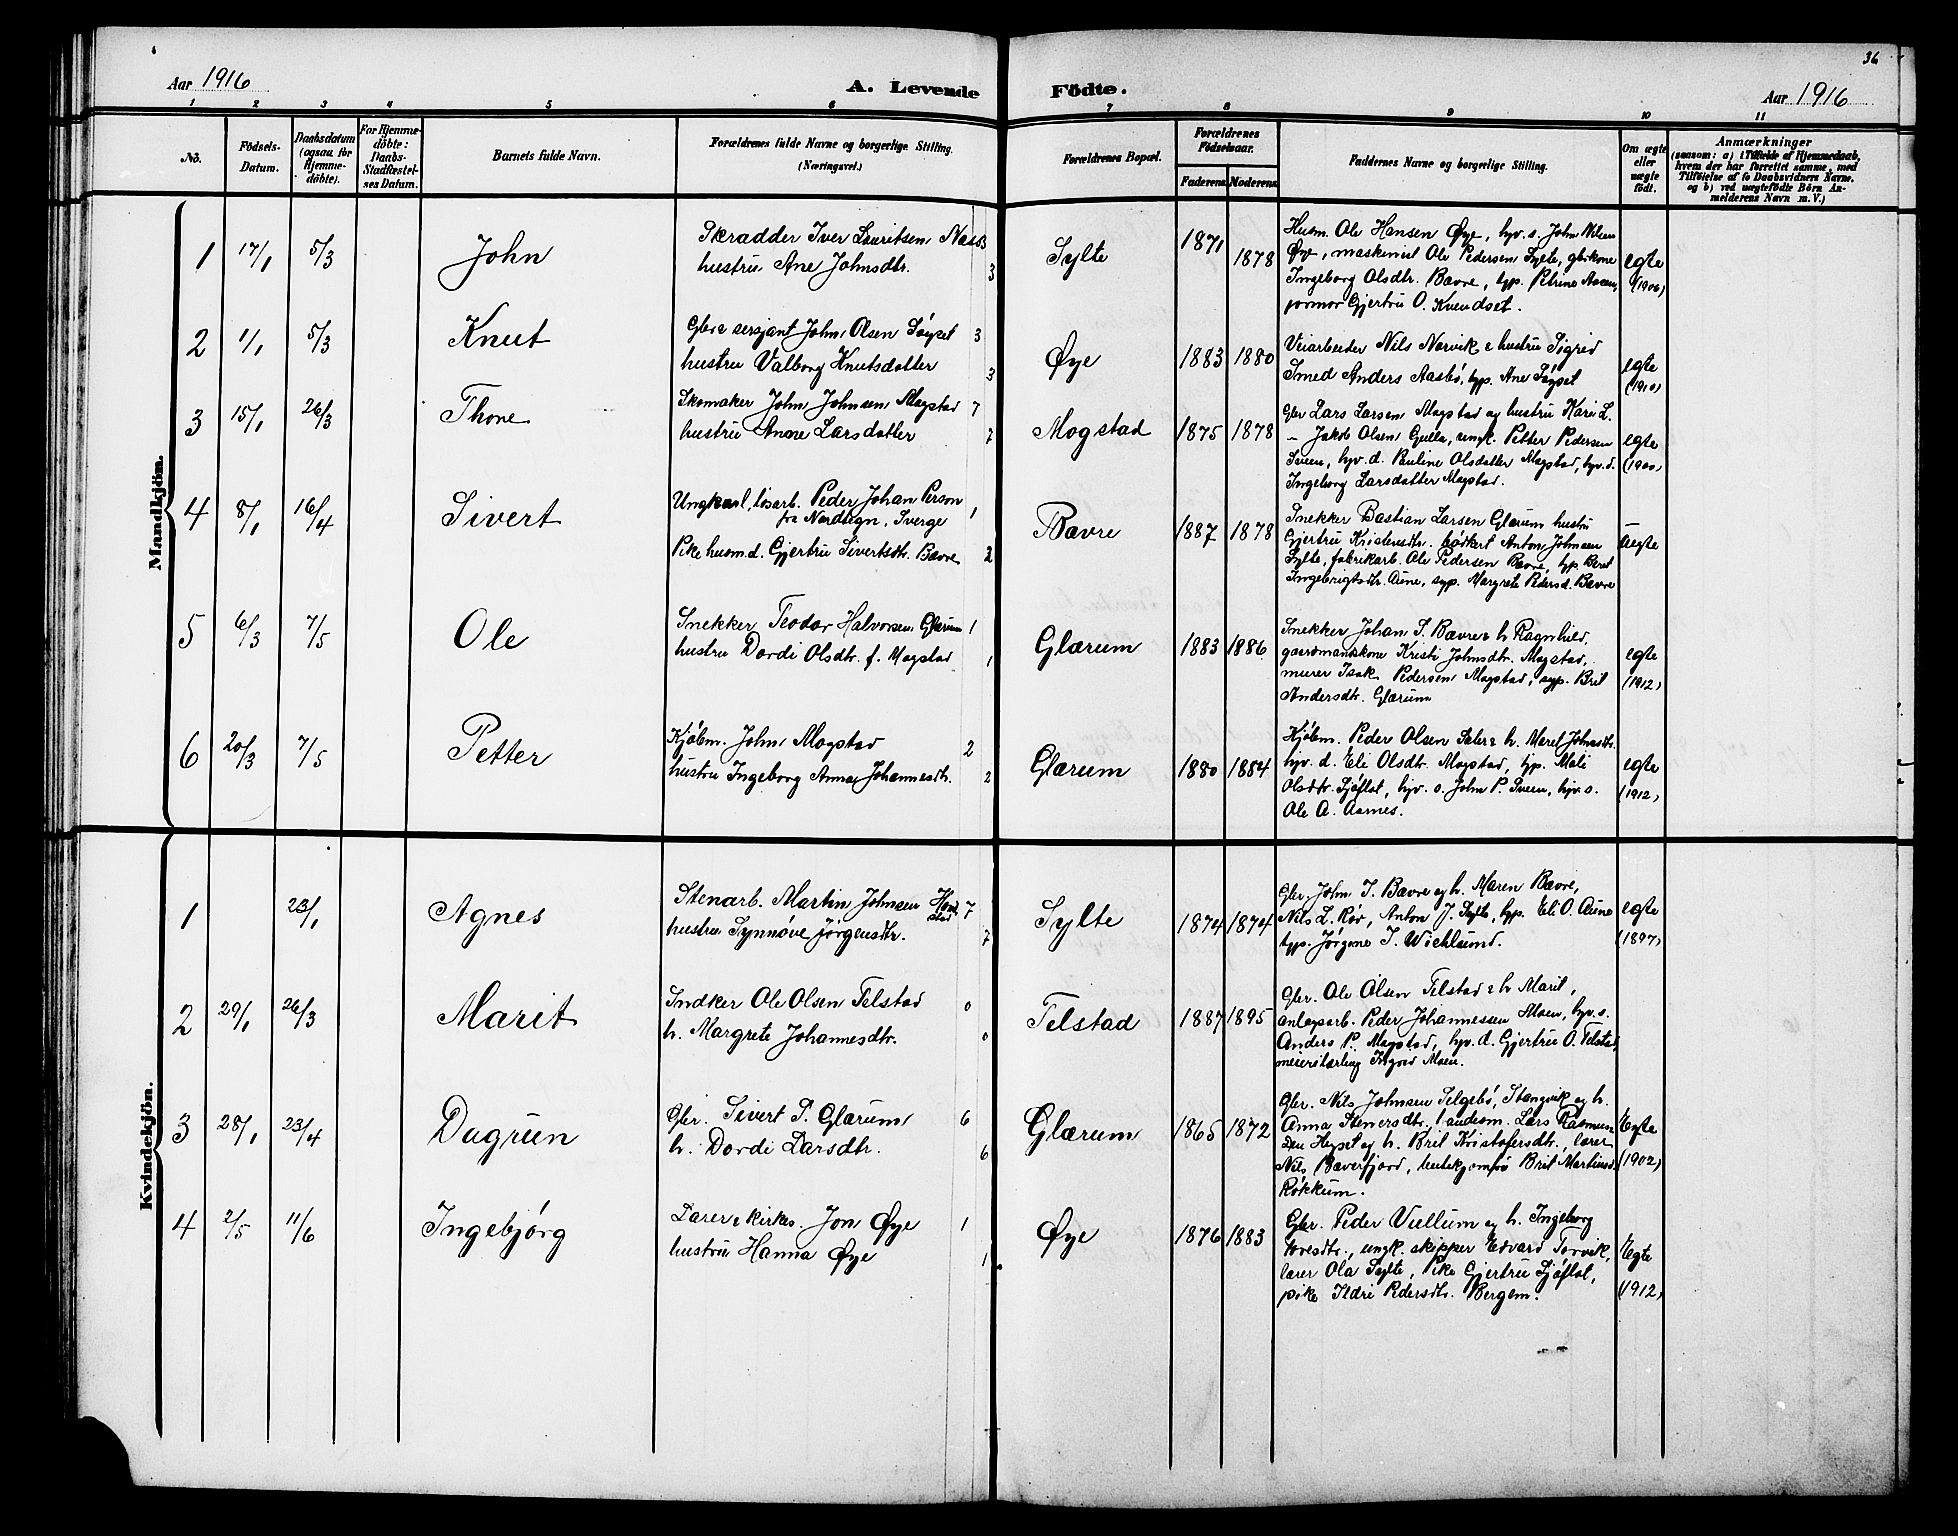 36
Aar 1916
A. Levende Födte.
Aar 1916
1 2 3 4 5 6 7 8 9 10 11
No.
Födsels-Datum.
Daabsdatum (ogsaa for Hjemme-döbte).
For Hjemme-döbte: Daabs-Stadfæstel-ses Datum.
Barnets fulde Navn.
Forældrenes fulde Navne og borgerlige Stilling. (Næringsvei.)
Forældrenes Bopæl.
Forældrenes Födselsaar.
Faderens Moderens
Faddernes Navne og borgerlige Stilling.
Om ægte eller uægte födt.
Anmærkninger
(saasom: a) i Tilfælde af Hjemmedaab,
hvem der har forrettet samme, med
Tilföielse af to Daabsvidners Navne,
og b) ved uægtefödte Börn An-
melderens Navn m. V.)
Mandkjön.
1 17/1 5/3 John
Skradder Iver Lauritsen Næss 3
hustru Ane Johnsdtr. 3
Sylte 1871 1878
Husm. Ole Hansen Øye, hyv. s. John Nilsen
Øye, maskinist Ole Pedersen Sylte, gbrkone
Ingeborg Olsdtr. Bævre, typ. Petrine Aasen,
jormor Gjertru O. Kvendset.
egte (1906)
2 1/1 5/3 Knut
Gbr & sersjant John Olsen Søyset 3
hustru Valborg Knutsdatter 3
Øye 1883 1880
Veiarbeider Nils Nærvik & hustru Sigrid
Smed Anders Aasbø, typ. Ane Søyset
egte (1910)
3 15/1 26/3 Thone
Skomaker John Johnsen Mogstad 7
hustru Anne Larsdatter 7
Mogstad 1875 1878
Gbr Lars Larsen Mogstad og hustru Kari L.
– Jakob Olsen Gulla, ungk. Petter Pedersen
Sveen, hyv. d. Pauline Olsdatter Mogstad, hyv. d.
Ingeborg Larsdatter Mogstad.
egte (1900)
4 8/1 16/4 Sivert
Ungkarl, løsarb. Peder Johan Person 1
fra Nordsegn, Sverge
Pike husm. d. Gjertru Sivertsdtr. Bævre 2
Bævre 1887 1878
Snekker Bastian Larsen Glærum hustru
Gjertru Kristensdtr. bødkert Anton Johnsen
Sylte, fabrikarb. Ole Pedersen Bævre, typ. Beret
Ingebrigtsdtr. Aune, syp. Margrete Pedersd. Bævre
– uegte
5 6/3 7/5 Ole
Snekker Teodor Halvorsen Glærum 1
hustru Dordi Olsdtr. f. Mogstad 1
Glærum 1883 1886
Snekker Johan S. Bævre & h. Ragnhild,
gaaromandskone Kristi Johnsdtr. Mogstad,
murer Isak Pedersen Mogstad, syp. Brit
Andersdtr. Glærum
egte (1912)
6 20/3 7/5 Petter
Kjøbm. John Mogstad 2
hustru Ingeborg Anna Johannesdtr. 2
Glærum 1880 1884
Kjøbm. Peder Olsen Sæter & h. Maret Johnsdtr.
hyv. d. Eli Olsdtr. Mogstad, typ. Mali
Olsdtr. Sjøflot, hyv. s. John P. Sveen, hyv. s.
Ole A. Aarnes.
egte (1912)
Kvindekjön.
1 23/1 Agnes
Stenarb. Martin Johnsen Hanstad 7
hustru Synnøve Jørgensdtr. 7
Sylte 1874 1874
Gbr John I. Bævre og h. Maren Bævre,
Nils L. Rør, Anton J. Sylte, typ. Eli O. Aune
typ. Jørgine I. Wichlund.
egte (1897)
2 29/1 26/3 Marit
Snekker Ole Olsen Telstad 0
h. Margrete Johannesdtr. 0
Telstad 1887 1895
Gbr. Ole Olsen Telstad & h Marit,
anlegsarb. Peder Johannessen Moen, hyv. s.
Anders P. Mogstad, hyv. d. Gjertru O. Telstad,
meierilærling Ingvor Moen.
3 28/1 23/4 Dagrun
Gbr. Sivert P. Glærum 6
h. Dordi Larsdtr. 6
Glærum 1865 1872
Gbr. Nils Johnsen Selgebø, Stangvik og h.
Anna Stenersdtr., landsm. Lars Rasmus-
sen Heyset og h. Brit Kristofersdtr., lærer
Nils Bæverfjord, butikjomfru Brit Martinsd.
Røkkum.
Egte (1902)
4 2/5 11/6 Ingebjørg
Lærer & kirkes. Jon Øye 1
hustru Hanna Øye 1
Øye 1876 1883
Gbr. Peder Vullum og h. Ingeborg
Toresdtr., ungk. skipper Edvard Torvik,
lærer Ola Sylte, Pike Gjertru Sjøflot,
pike Ildri Pedersdtr. Bergem.
Egte (1912)